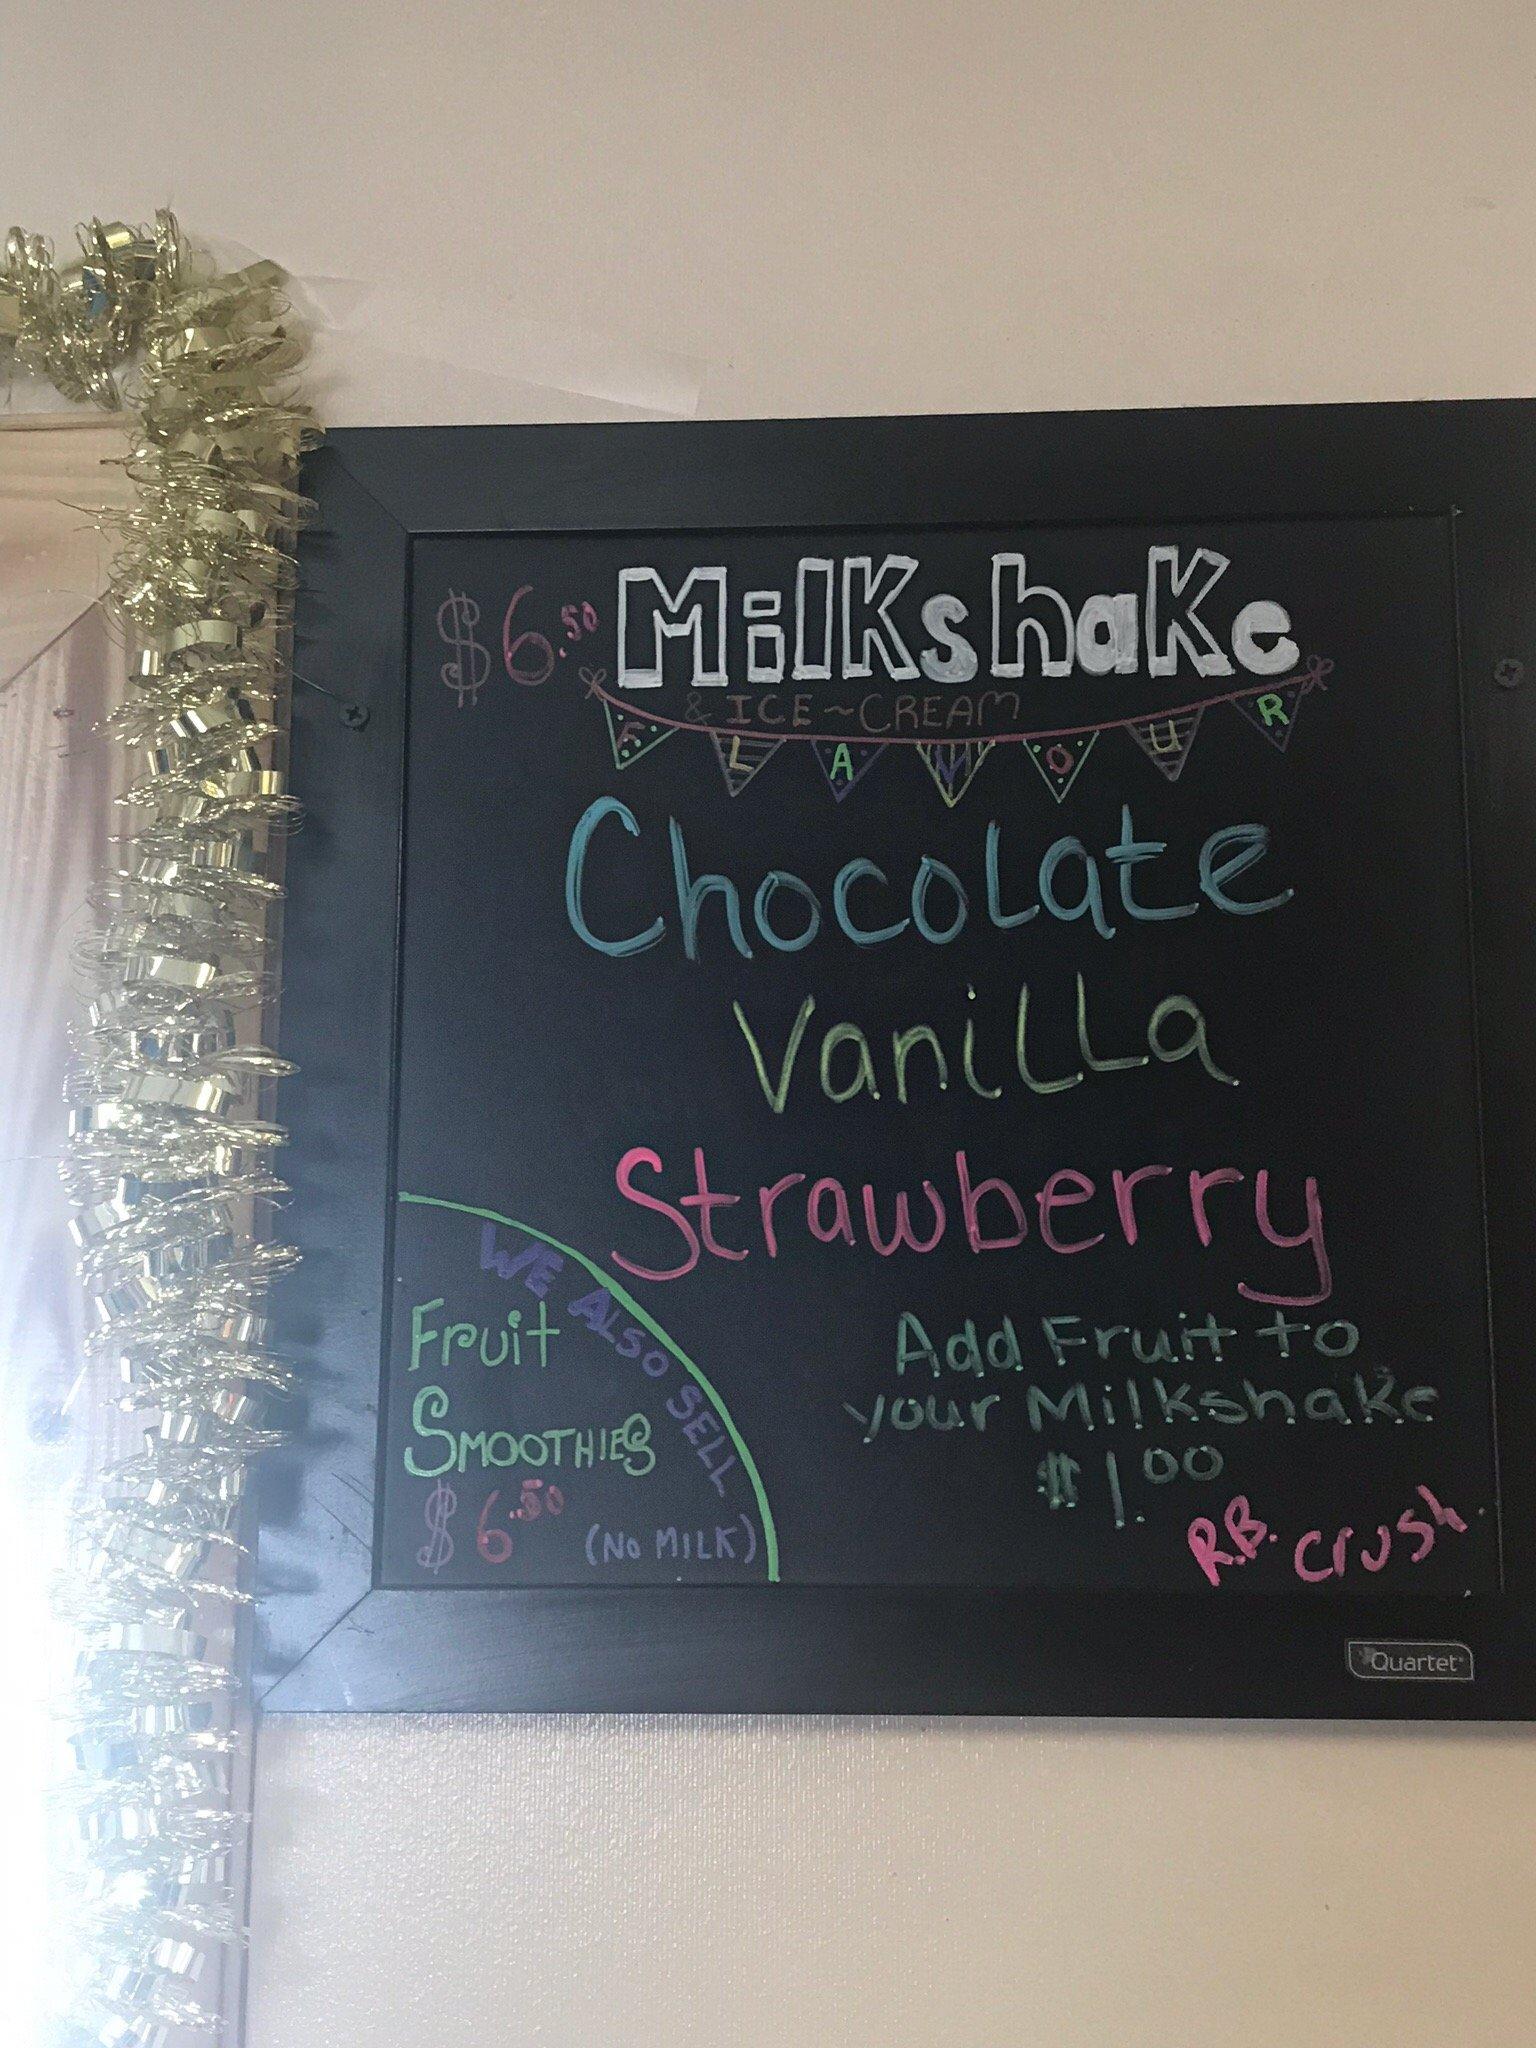 $6.50 Milkshake
& ICE~CREAM
FLAVOUR
Chocolate
Vanilla
Strawberry
WE ALSO SELL
Fruit
SMOOTHIES
$6.50 (NO MILK)
Add Fruit to
your Milkshake
$1.00
R.B. Crush.
Quartet